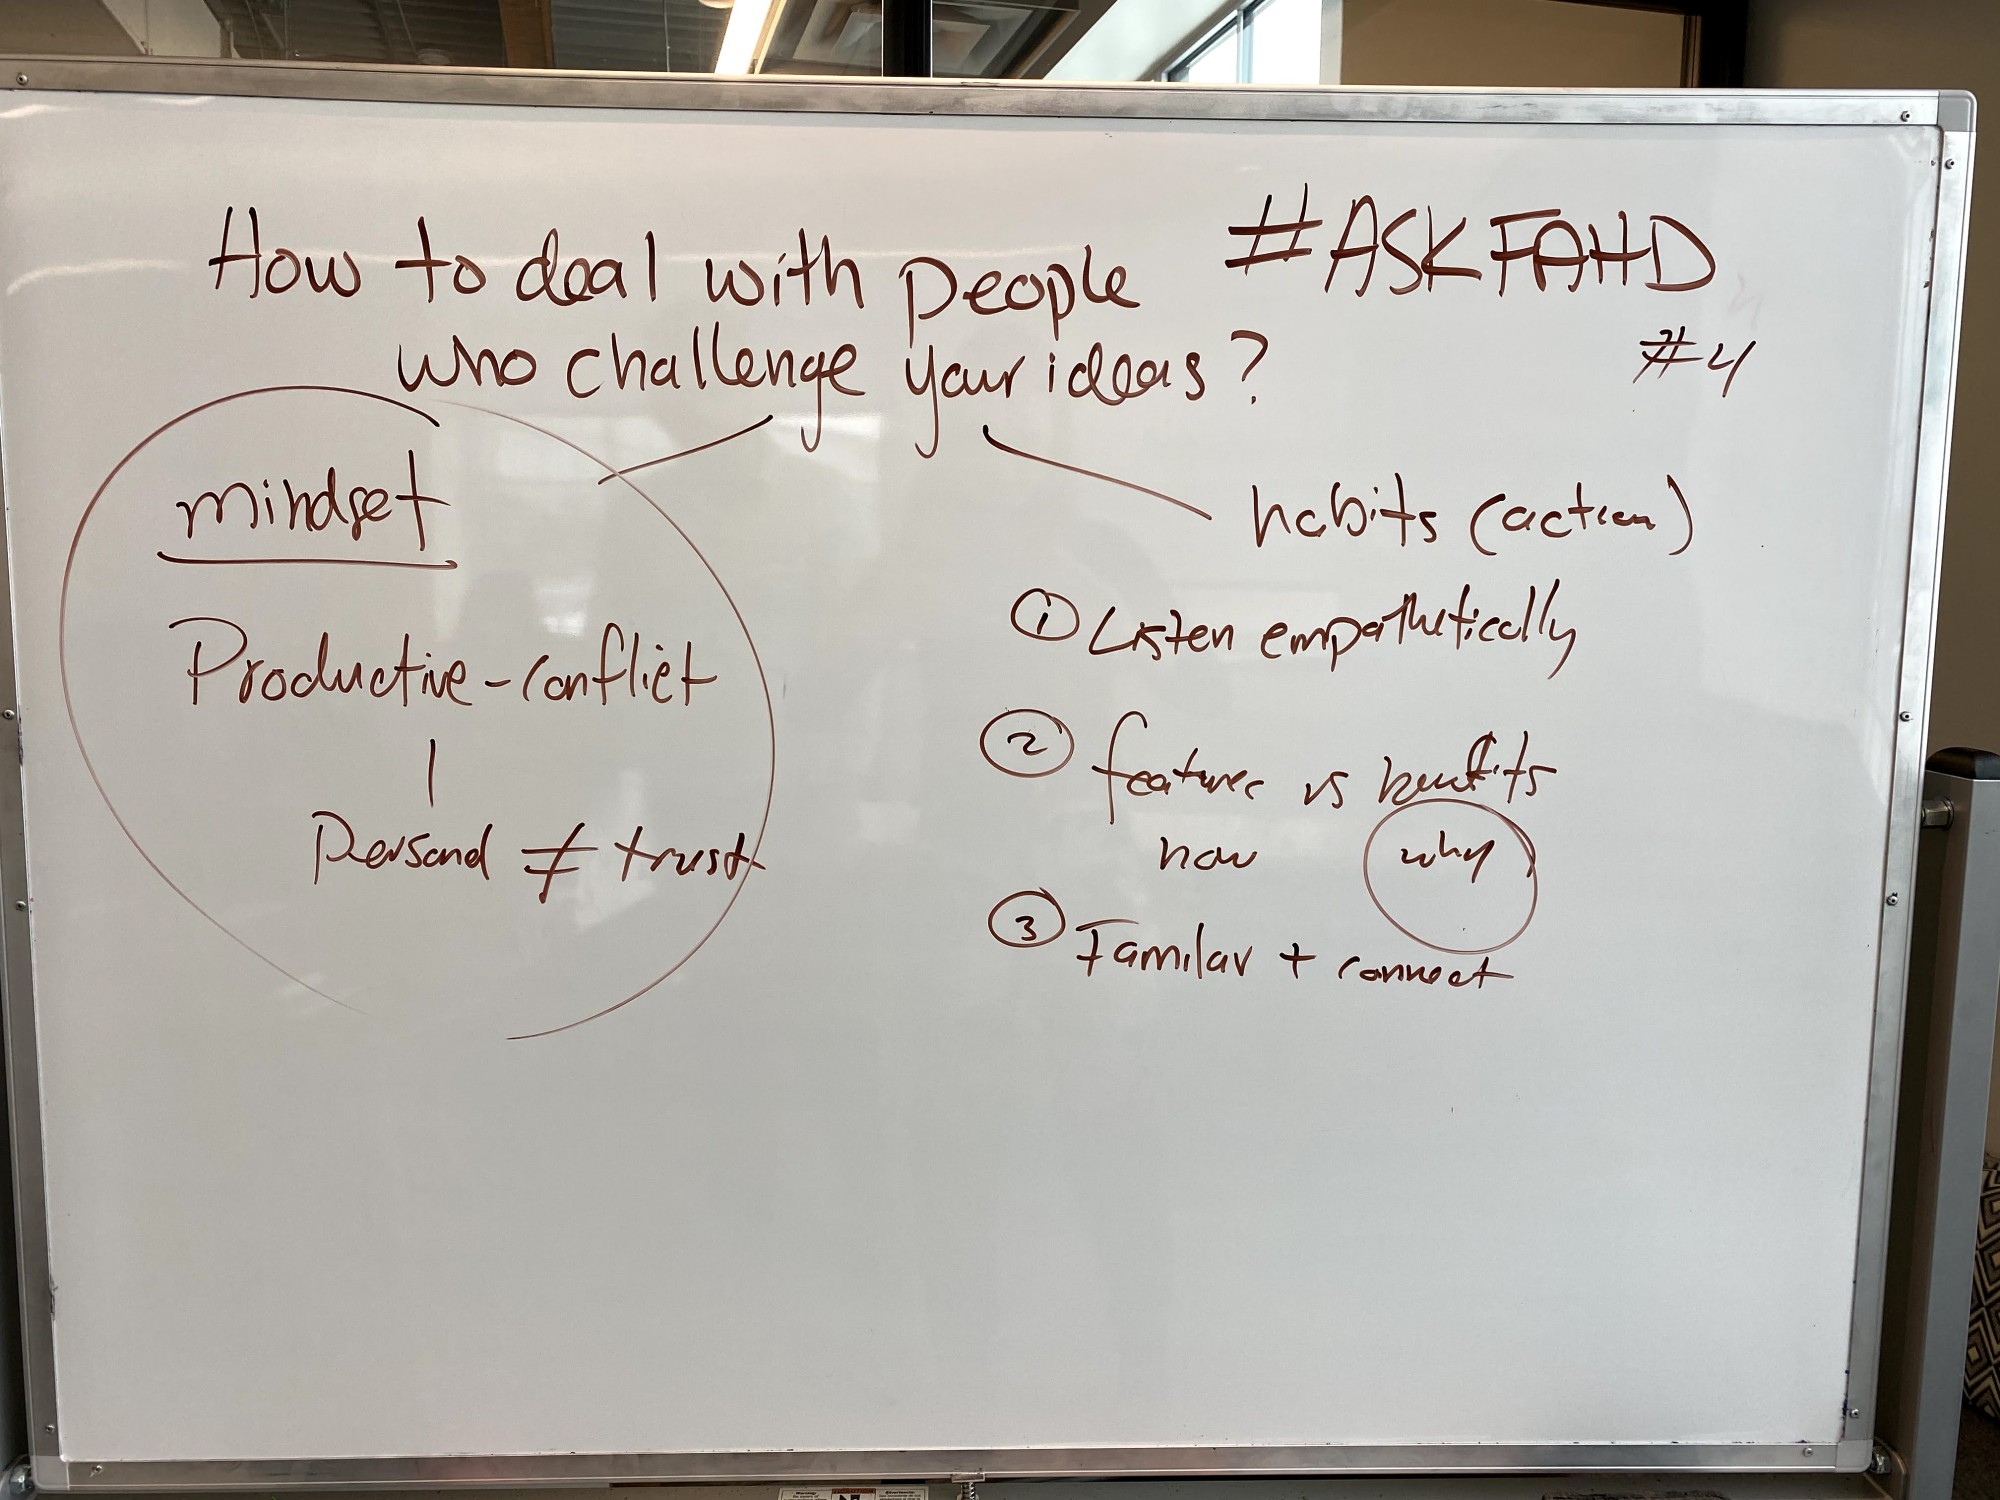 How to deal with people
who challenge your ideas?
#ASKFAHD
#4
mindset
Productive-conflict
Personal ≠ trust
habits (action)
① Listen empathetically
② features vs benefits
how why
③ Familar + connect